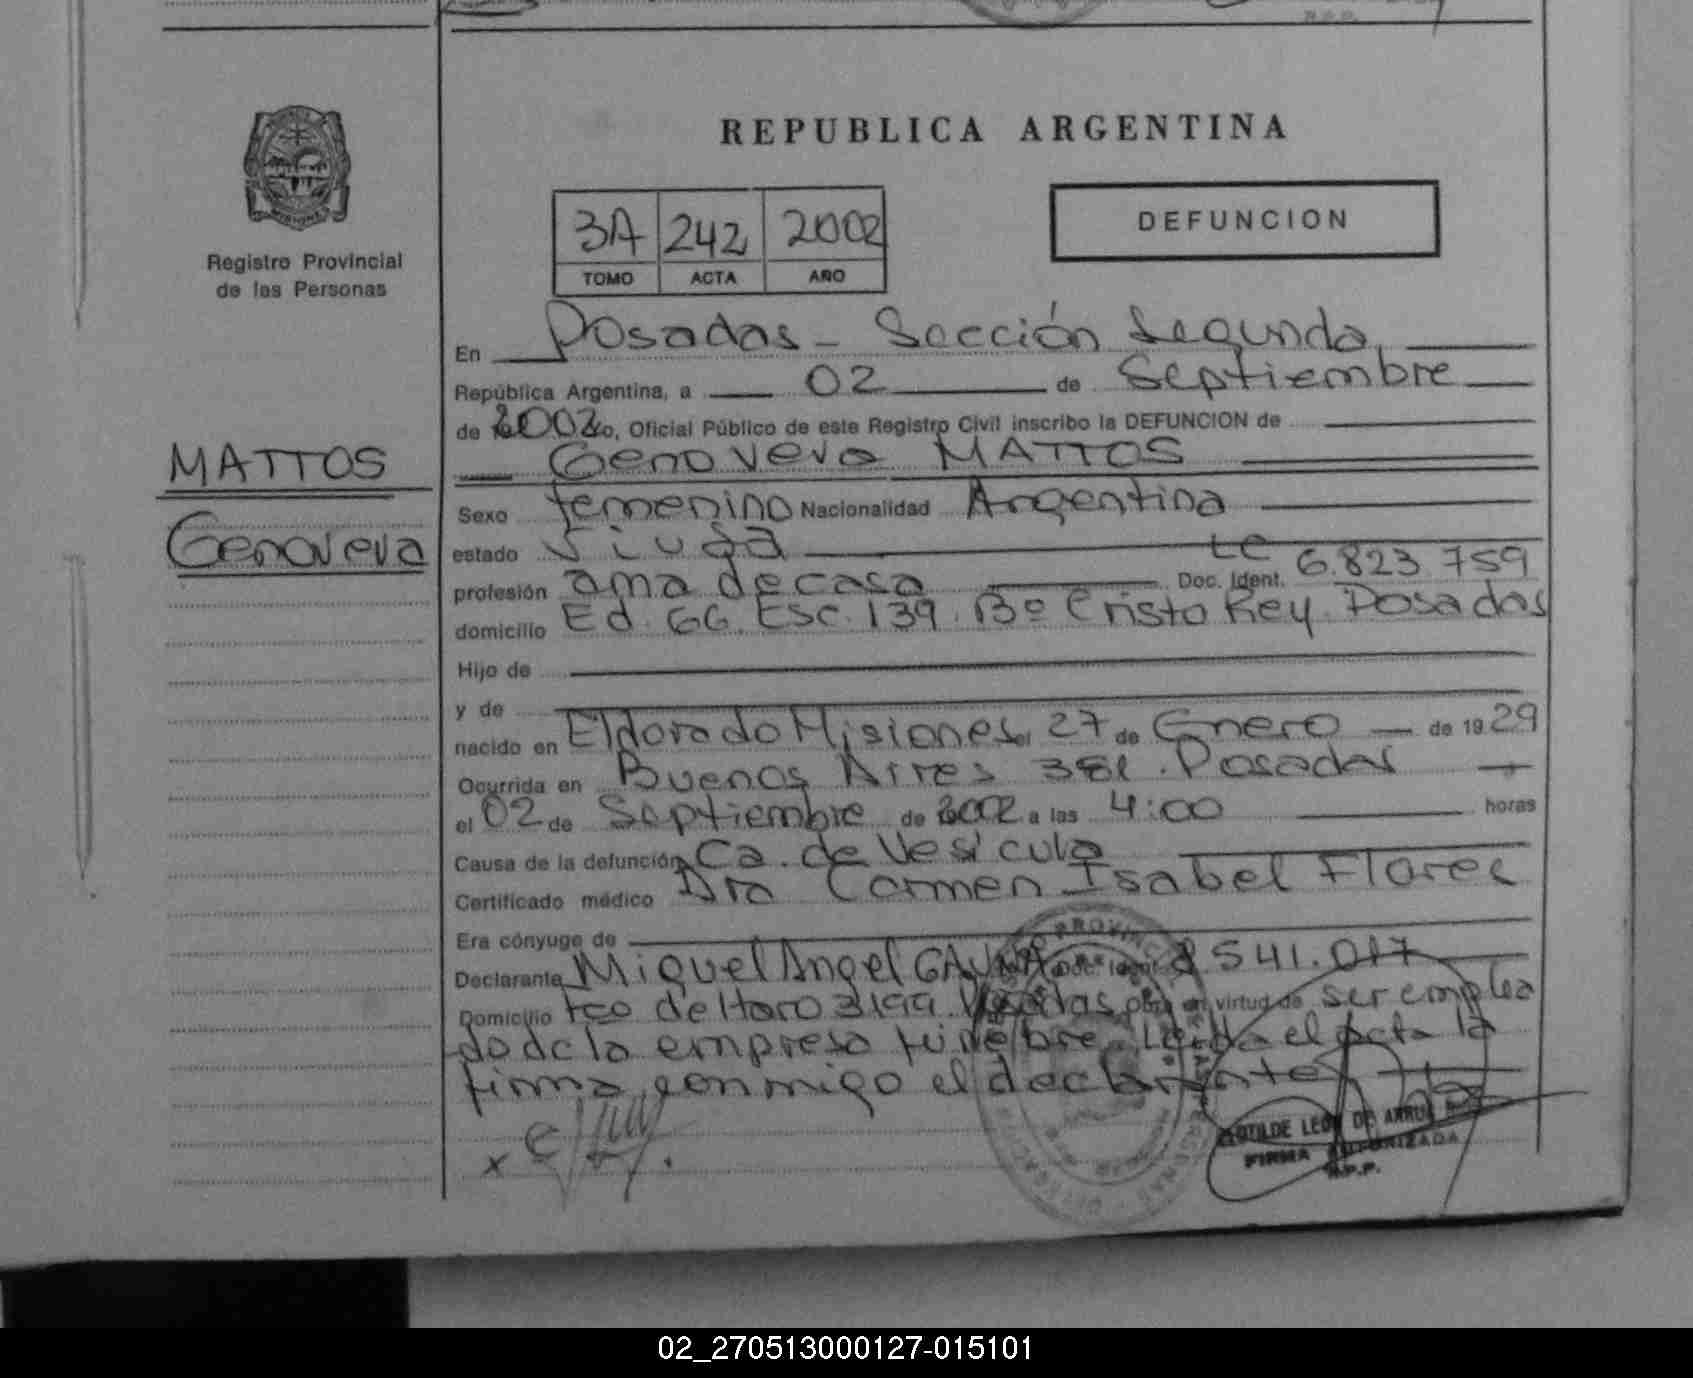 REPUBLICA ARGENTINA
Registro Provincial
de las Personas
3A 242 2002
TOMO ACTA AÑO
DEFUNCION
MATTOS
Genoveva
En Posadas - Sección Segunda
República Argentina, a 02 de Septiembre
de 2002 yo, Oficial Público de este Registro Civil inscribo la DEFUNCION de
Genoveva MATTOS
Sexo femenino Nacionalidad Argentina
estado Viuda
profesión ama de casa Doc. Ident. LC 6.823 759
domicilio Ed. 66. Esc. 139. Bº Cristo Rey. Posadas
Hijo de
y de
nacido en Eldorado Misiones el 27 de Enero de 1929
Ocurrida en Buenos Aires Posadas
el 02 de Septiembre de 2002 a las 4:00 horas
Causa de la defunción Ca. de Vesicula
Certificado médico Dra Carmen Isabel Flores
Era cónyuge de
Declarante Miguel Angel Doc. Ident. 541.017
Domicilio Fco de Haro en virtud de ser emplea
do de la empresa fúnebre. Leída el acta la
firma conmigo el declarante
x
CLOTILDE LEON DE
FIRMA AUTORIZADA
R.P.P.
02_270513000127-015101